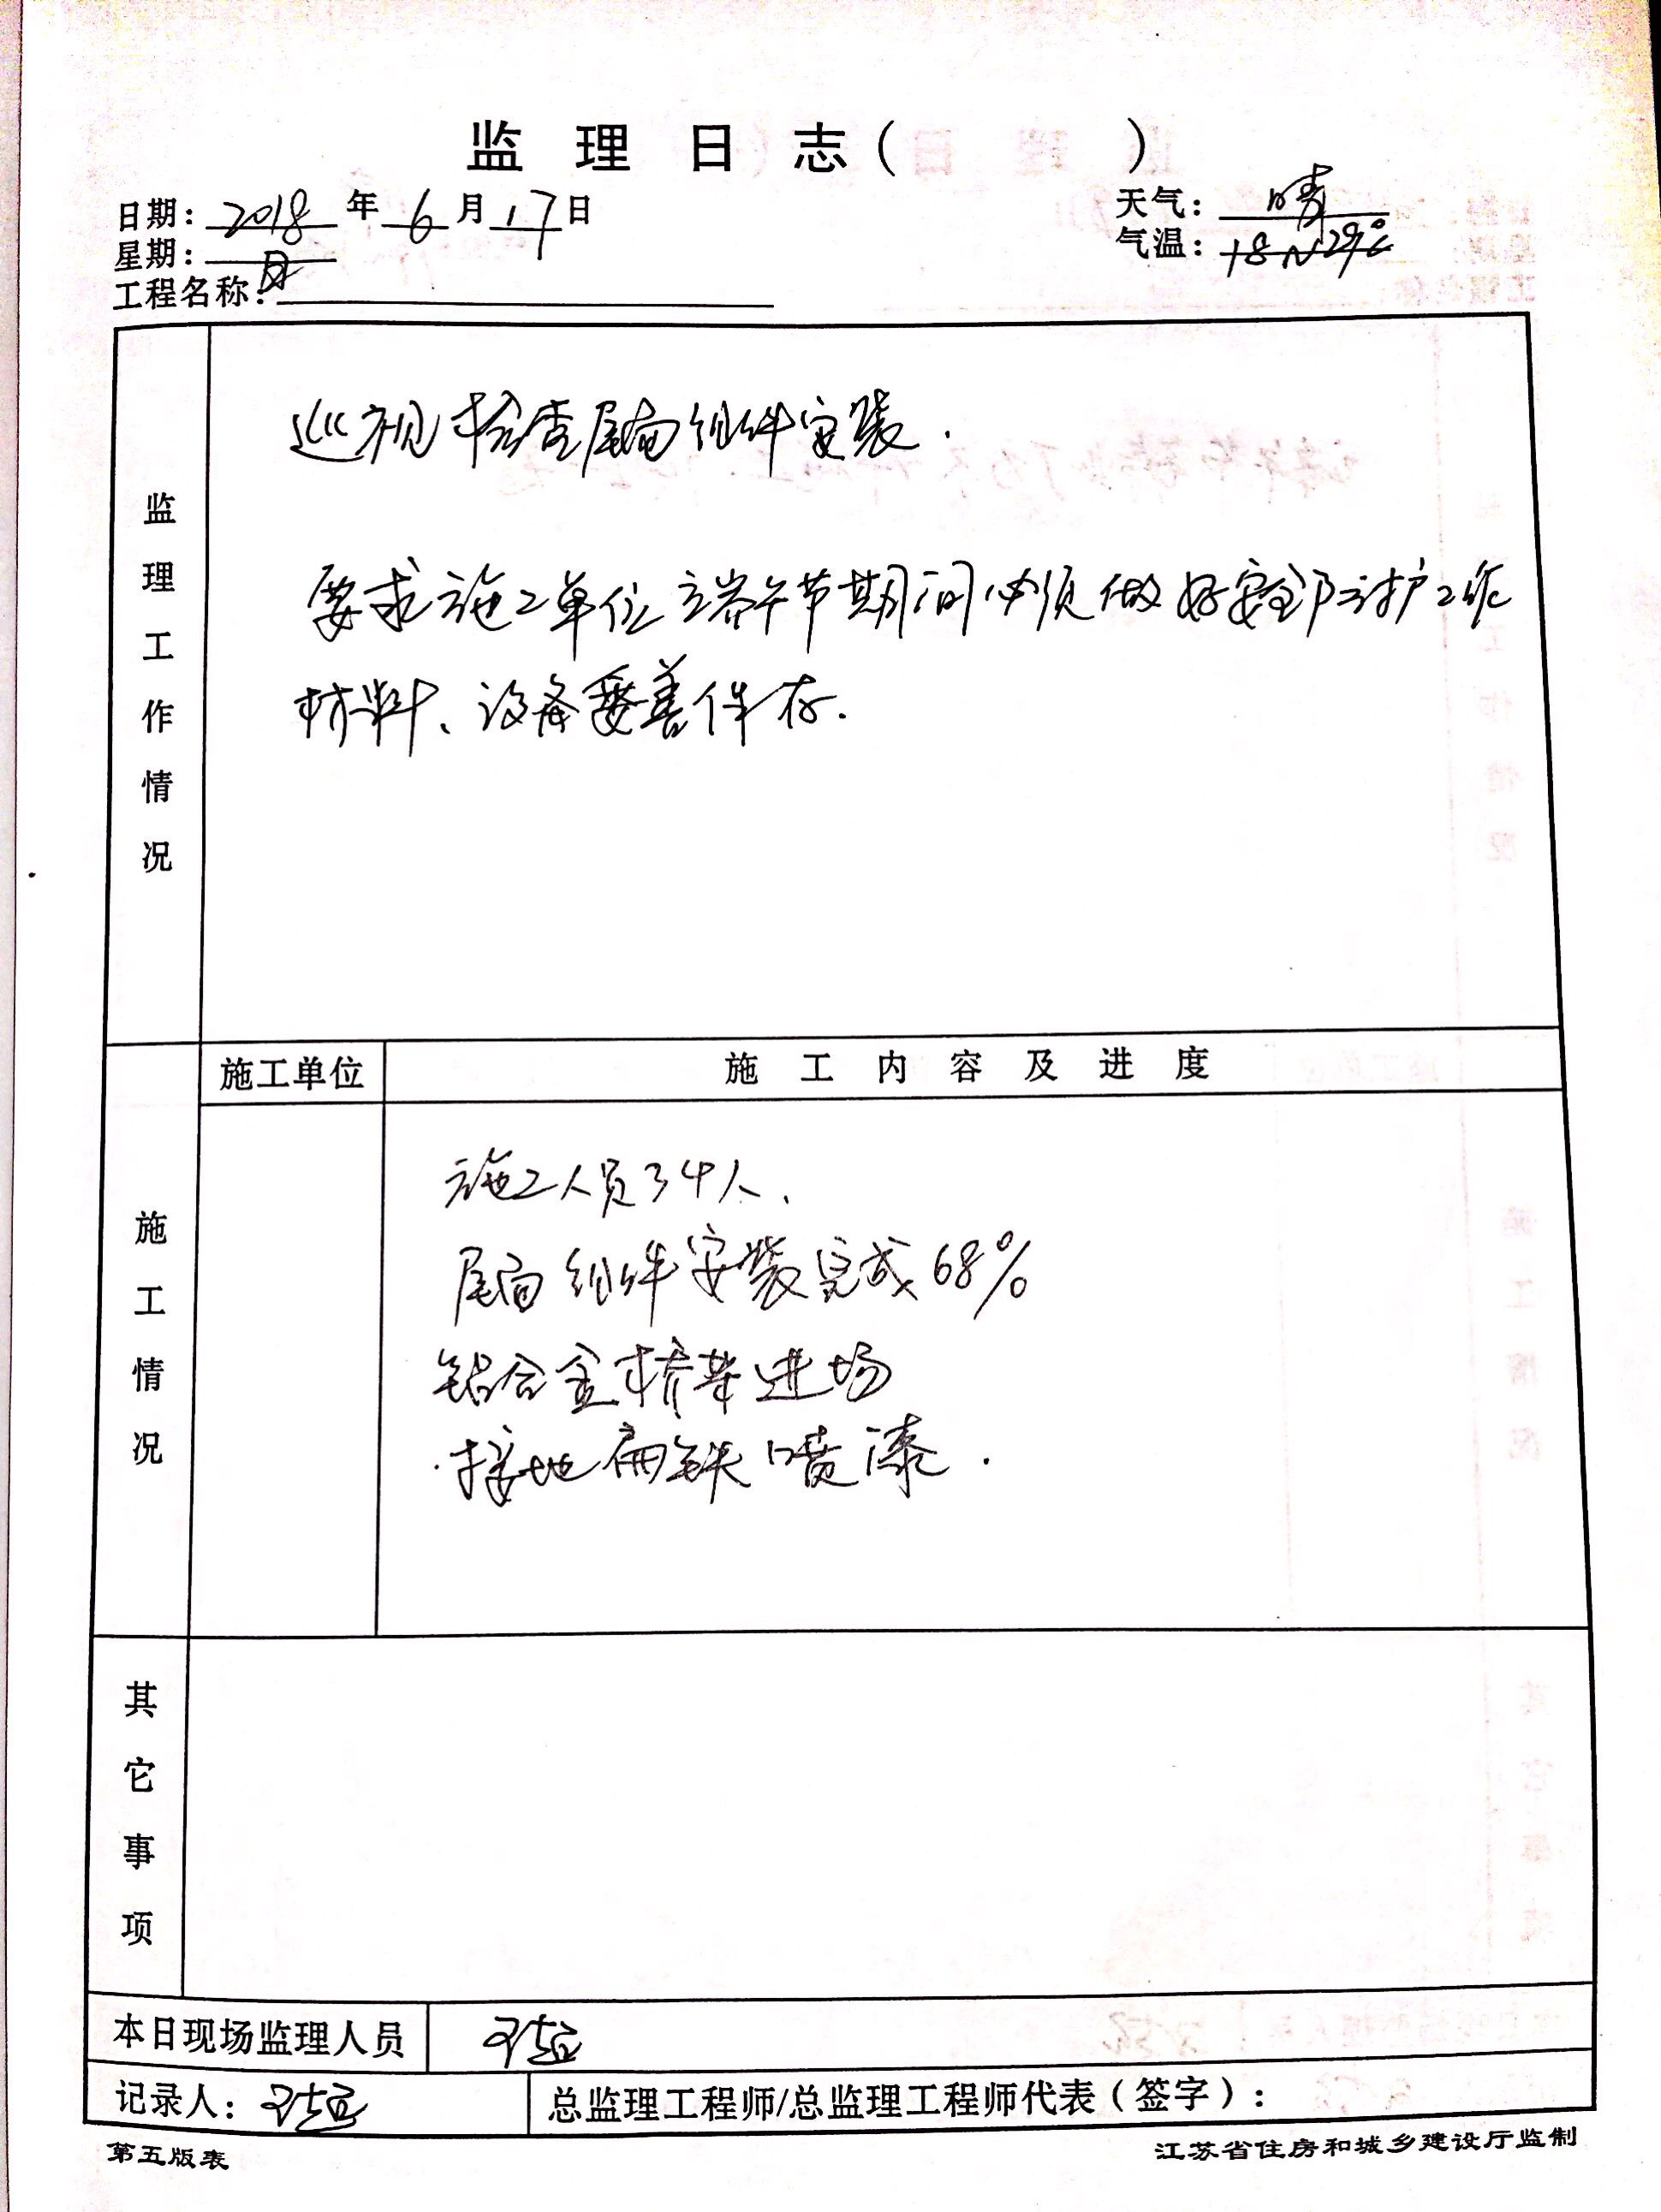 监理日志（ ）
日期：2018年6月17日 天气：晴
星期：日 气温：18~29℃
工程名称：
监理工作情况
巡视检查屋面组件安装.
要求施工单位在端午节期间必须做好安全防护工作
材料、设备妥善保存.
施工单位 施工内容及进度
施工情况
施工人员34人、
屋面组件安装完成68%
铝合金桥架进场
接地扁铁喷漆.
其它事项
本日现场监理人员
记录人： 总监理工程师/总监理工程师代表（签字）：
第五版表 江苏省住房和城乡建设厅监制